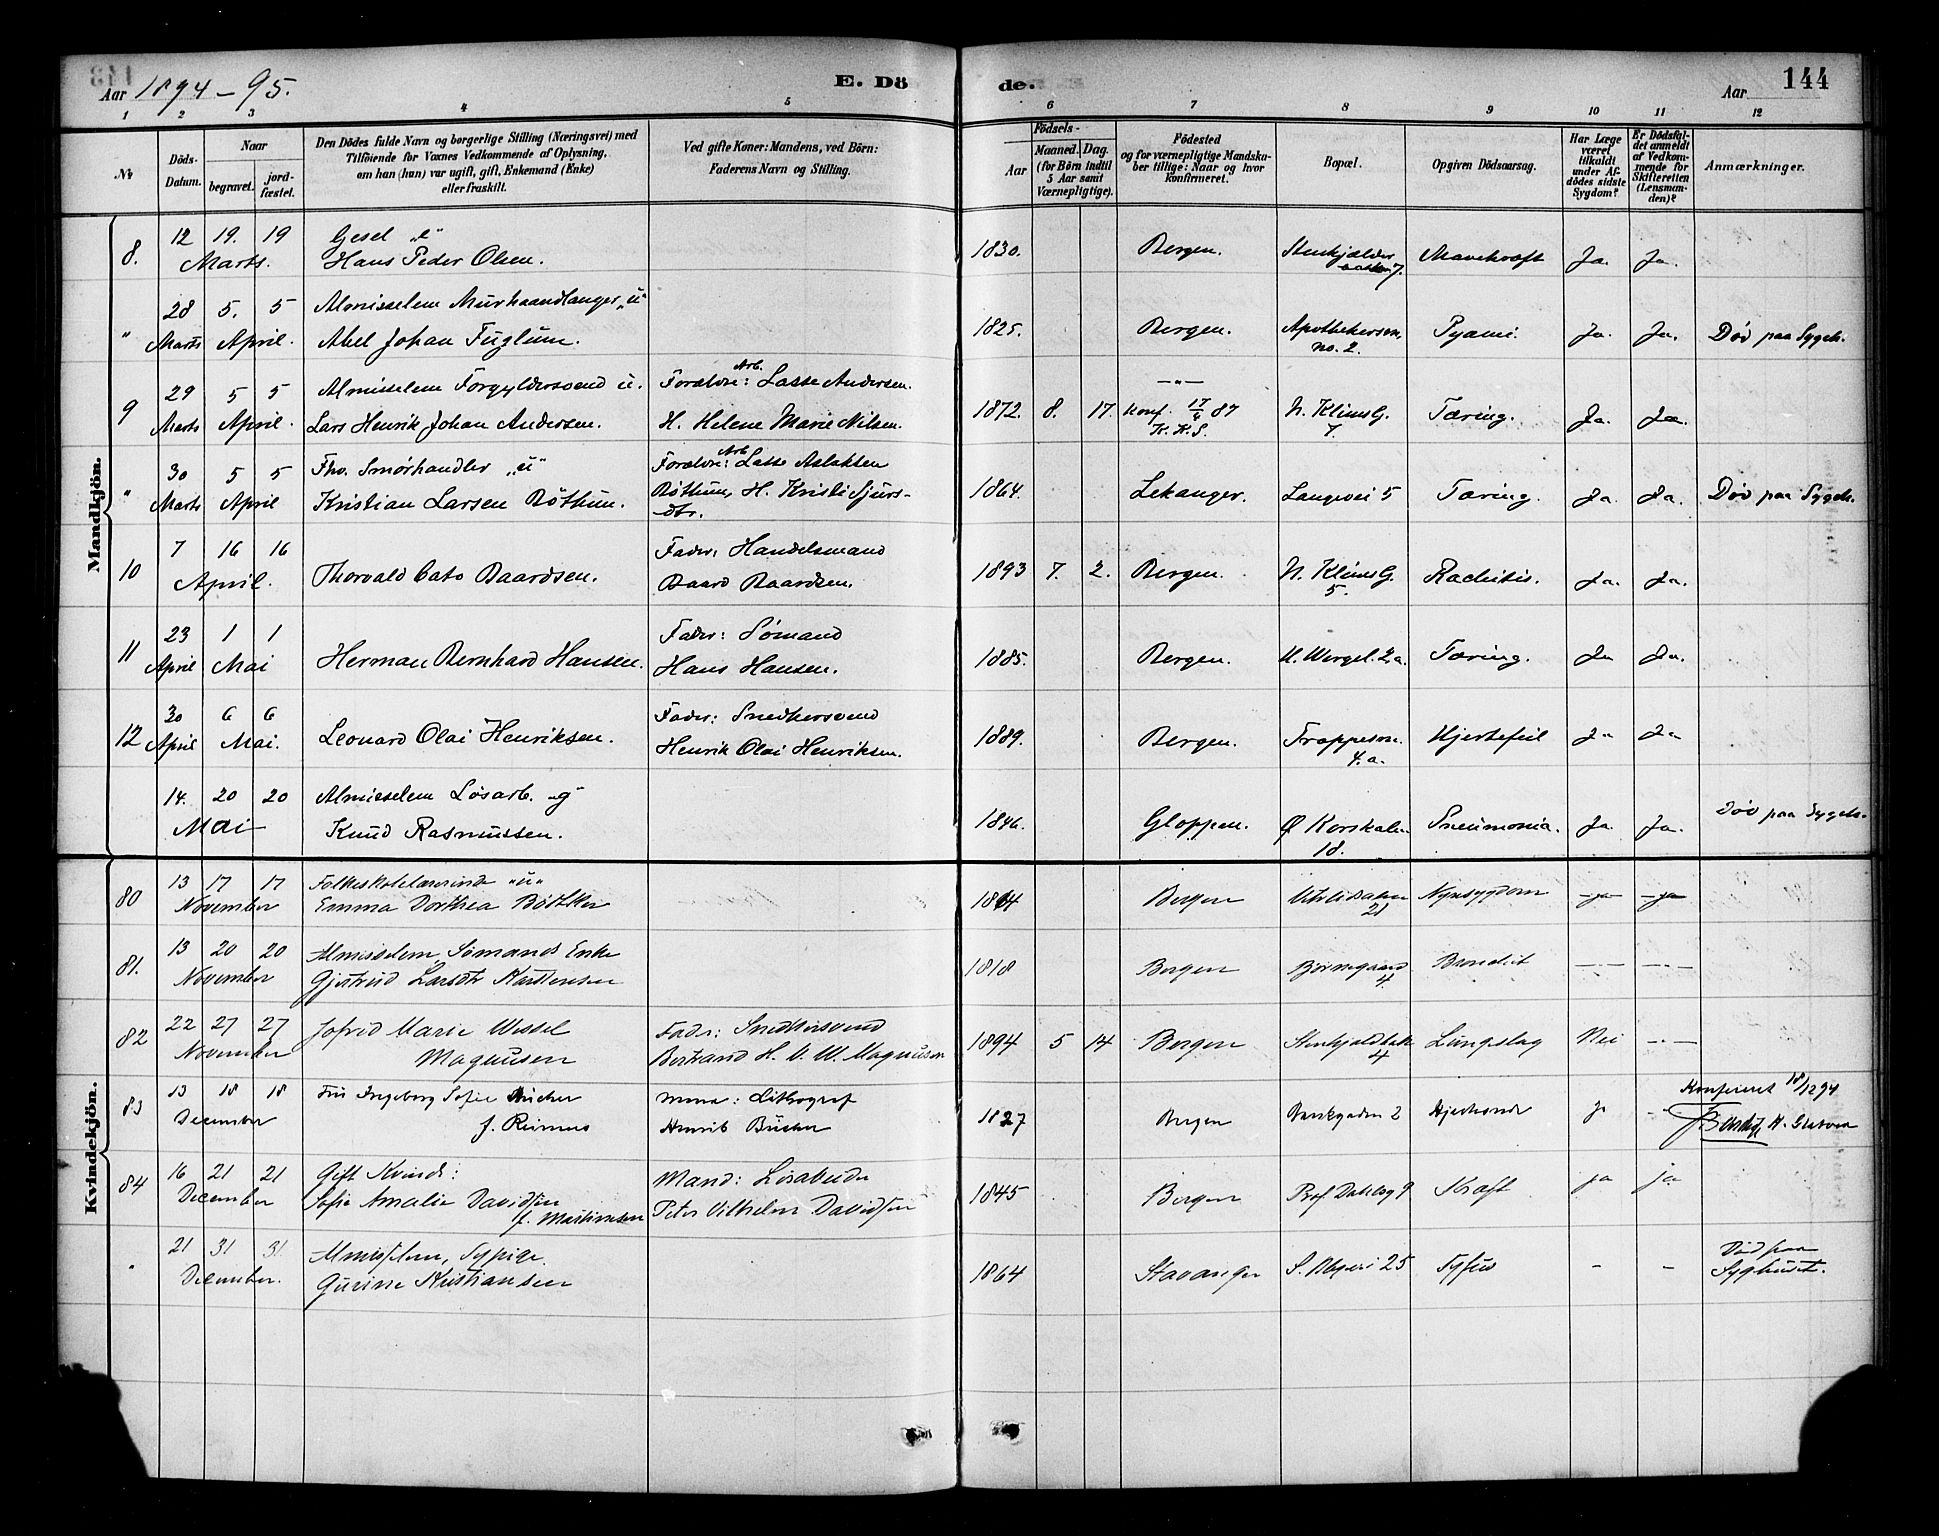 Aar 1894-95.
E. Dö
de.
Aar
144
1 2 3 4 5 6 7 8 9 10 11 12
№
Döds-Datum.
Naar
begravet.
jord-fæstet.
Den Dödes fulde Navn og borgerlige Stilling (Næringsvei) med
Tilföiende for Voxnes Vedkommende af Oplysning,
om han (hun) var ugift, gift, Enkemand (Enke)
eller fraskilt.
Ved gifte Koner: Mandens, ved Börn:
Faderens Navn og Stilling.
Födsels-
Aar
Maaned. Dag.
(for Börn indtil
5 Aar samt
Værnepligtige).
Födested
og for værnepligtige Mandska-
ber tillige: Naar og hvor
konfirmeret.
Bopæl.
Opgiven Dödsaarsag.
Har Læge
været
tilkaldt
under Af-
dödes sidste
Sygdom?
Er Dödsfal-
det anmeldt
af Vedkom-
mende for
Skifteretten
(Lensman-
den)?
Anmærkninger.
Mandkjön.
8. 12 19. 19 Marts. Gesel „e“
Hans Peder Olsen. 1830. Bergen. Ja. Ja.
" 28 5. 5 Marts April. Almisselem Murhaandlanger „u“
Abel Johan Fuglum. 1825. Bergen. no. 2. Pyæmi. Ja. Ja. Död paa Sygeh.
9 29 5 5 Marts April. Almisselem Forgyldersvend u.
Lars Henrik Johan Andersen. Forældre: Arb. Lasse Andersen.
H. Helene Marie Nilsen. 1872. 8. 17. —"—
Konf. 17/4 87
K. K. S. N. Klims G.
7. Tæring. Ja. Ja.
" 30 5 5 Marts April Fhv. Smörhandler „u“
Kristian Larsen Böthun. Forældre: Arb. Lasse Aslaksen
Böthun, H. Kristi Sjurs-
dtr. 1864. Lekanger. Langevei 5 Tæring. Ja. Ja. Död paa Sygeh.
10 7 16 16 April. Thorvald Cato Baardsen. Fader: Handelsmand
Baard Baardsen. 1893 7. 2. Bergen. N. Klims G.
5. Rachitis. Ja. Ja.
11 23 1 1 April Mai Herman Bernhard Hansen. Fader: Sömand
Hans Hansen. 1885. Bergen. 2a. Tæring. Ja Ja.
12 30 6 6 April Mai. Leonard Olai Henriksen. Fader: Snedkersvend
Henrik Olai Henriksen. 1889. Bergen. 4.a. Hjertefeil Ja Ja
14. 20 20 Mai Almisselem Lösarb. „g“
Knud Rasmussen. 1846. Gloppen. 18. Pneumonia. Ja. Ja. Död paa Sygeh.
Kvindekjön.
80 13 17 17 November Folkeskolelærerinde „u“
Emma Dorthea 1864 Bergen 21 Ja Ja
81. 13 20 20 November Almisselem, Sömands Enke
Gjertrud Larsdtr Karstensen 1818 Bergen 4. — —
82 22 27 27 November Jofrid Marie Wessel
Magnusen Fader: Snedkersvend
Bertrand H. V. W. Magnusen 1894 5 14 Bergen 4 Lungslag Nei —"—
83 13 18 18 December Fru Ingeborg Sofie Bücher
f. Reimers Mand: Lithograf
Henrik Bücher 1827 Bergen 2 ja Konfereret 18/12 94
84 16 21 21 December Gift Kvinde:
Sofie Amalie Davidsen
f. Martinesen Mand: Lösarbeider
Peter Vilhelm Davidsen 1845 Bergen 9 Kræft ja ja
" 21 31 31. December. Almisselem, Sypige.
Gurine Kristiansen 1864 Stavanger 25 Tyfus - - Död paa
Sygehuset.